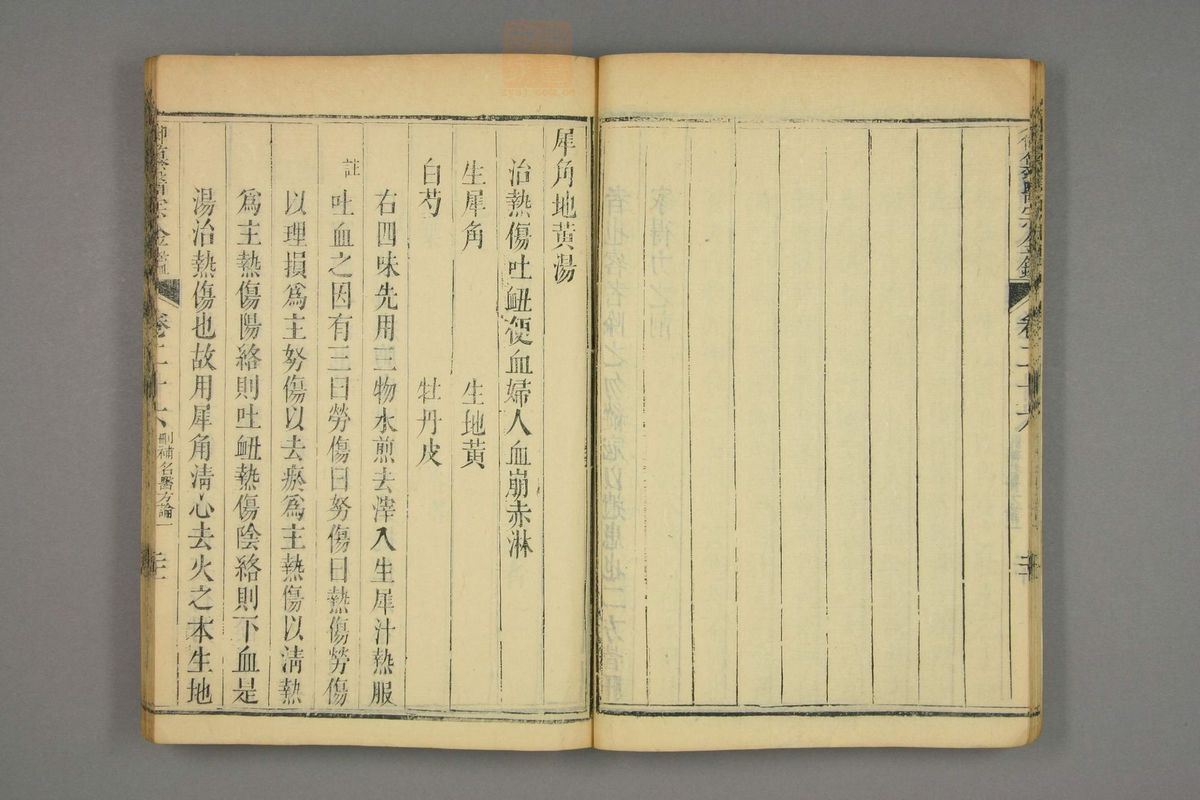 御纂醫宗金鑑 卷二十六
犀角地黃湯
治熱傷吐衄便血婦人血崩赤淋
生犀角 生地黃
白芍 牡丹皮
右四味先用三物水煎去滓入生犀汁熱服
註
吐血之因有三曰勞傷曰努傷曰熱傷勞傷
以理損爲主努傷以去瘀爲主熱傷以清熱
爲主熱傷陽絡則吐衄熱傷陰絡則下血是
湯治熱傷也故用犀角清心去火之本生地
御纂醫宗金鑑 卷二十六 刪補名醫方論一